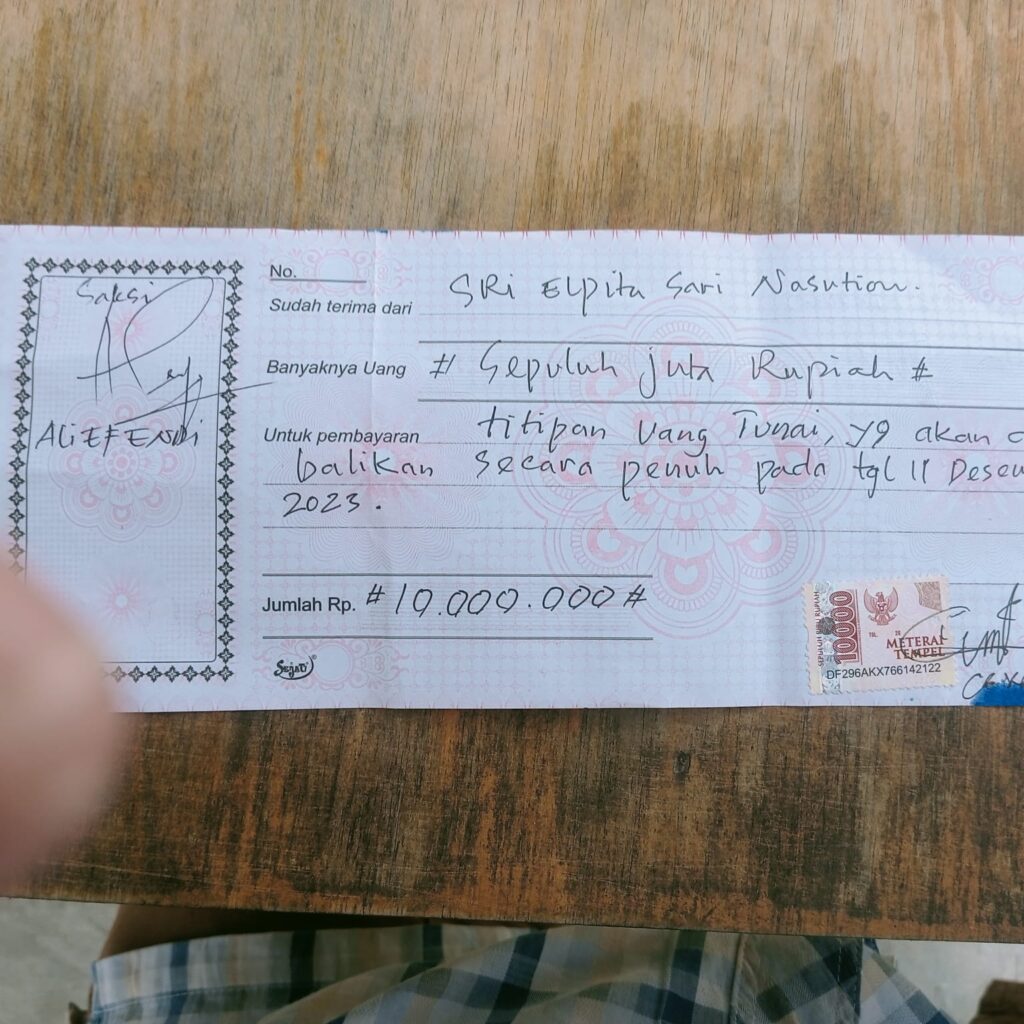 Saksi
ALI EFENDI
No.
Sudah terima dari SRi Elpita Sari Nasution.
Banyaknya Uang # Sepuluh juta Rupiah #
Untuk pembayaran titipan Uang Tunai, yg akan
balikan secara penuh pada tgl 11 Desem
2023.
Jumlah Rp. # 10.000.000 #
SEJATI
SEPULUH RIBU RUPIAH
10000
TGL. 20
METERAI
TEMPEL
DF296AKX766142122